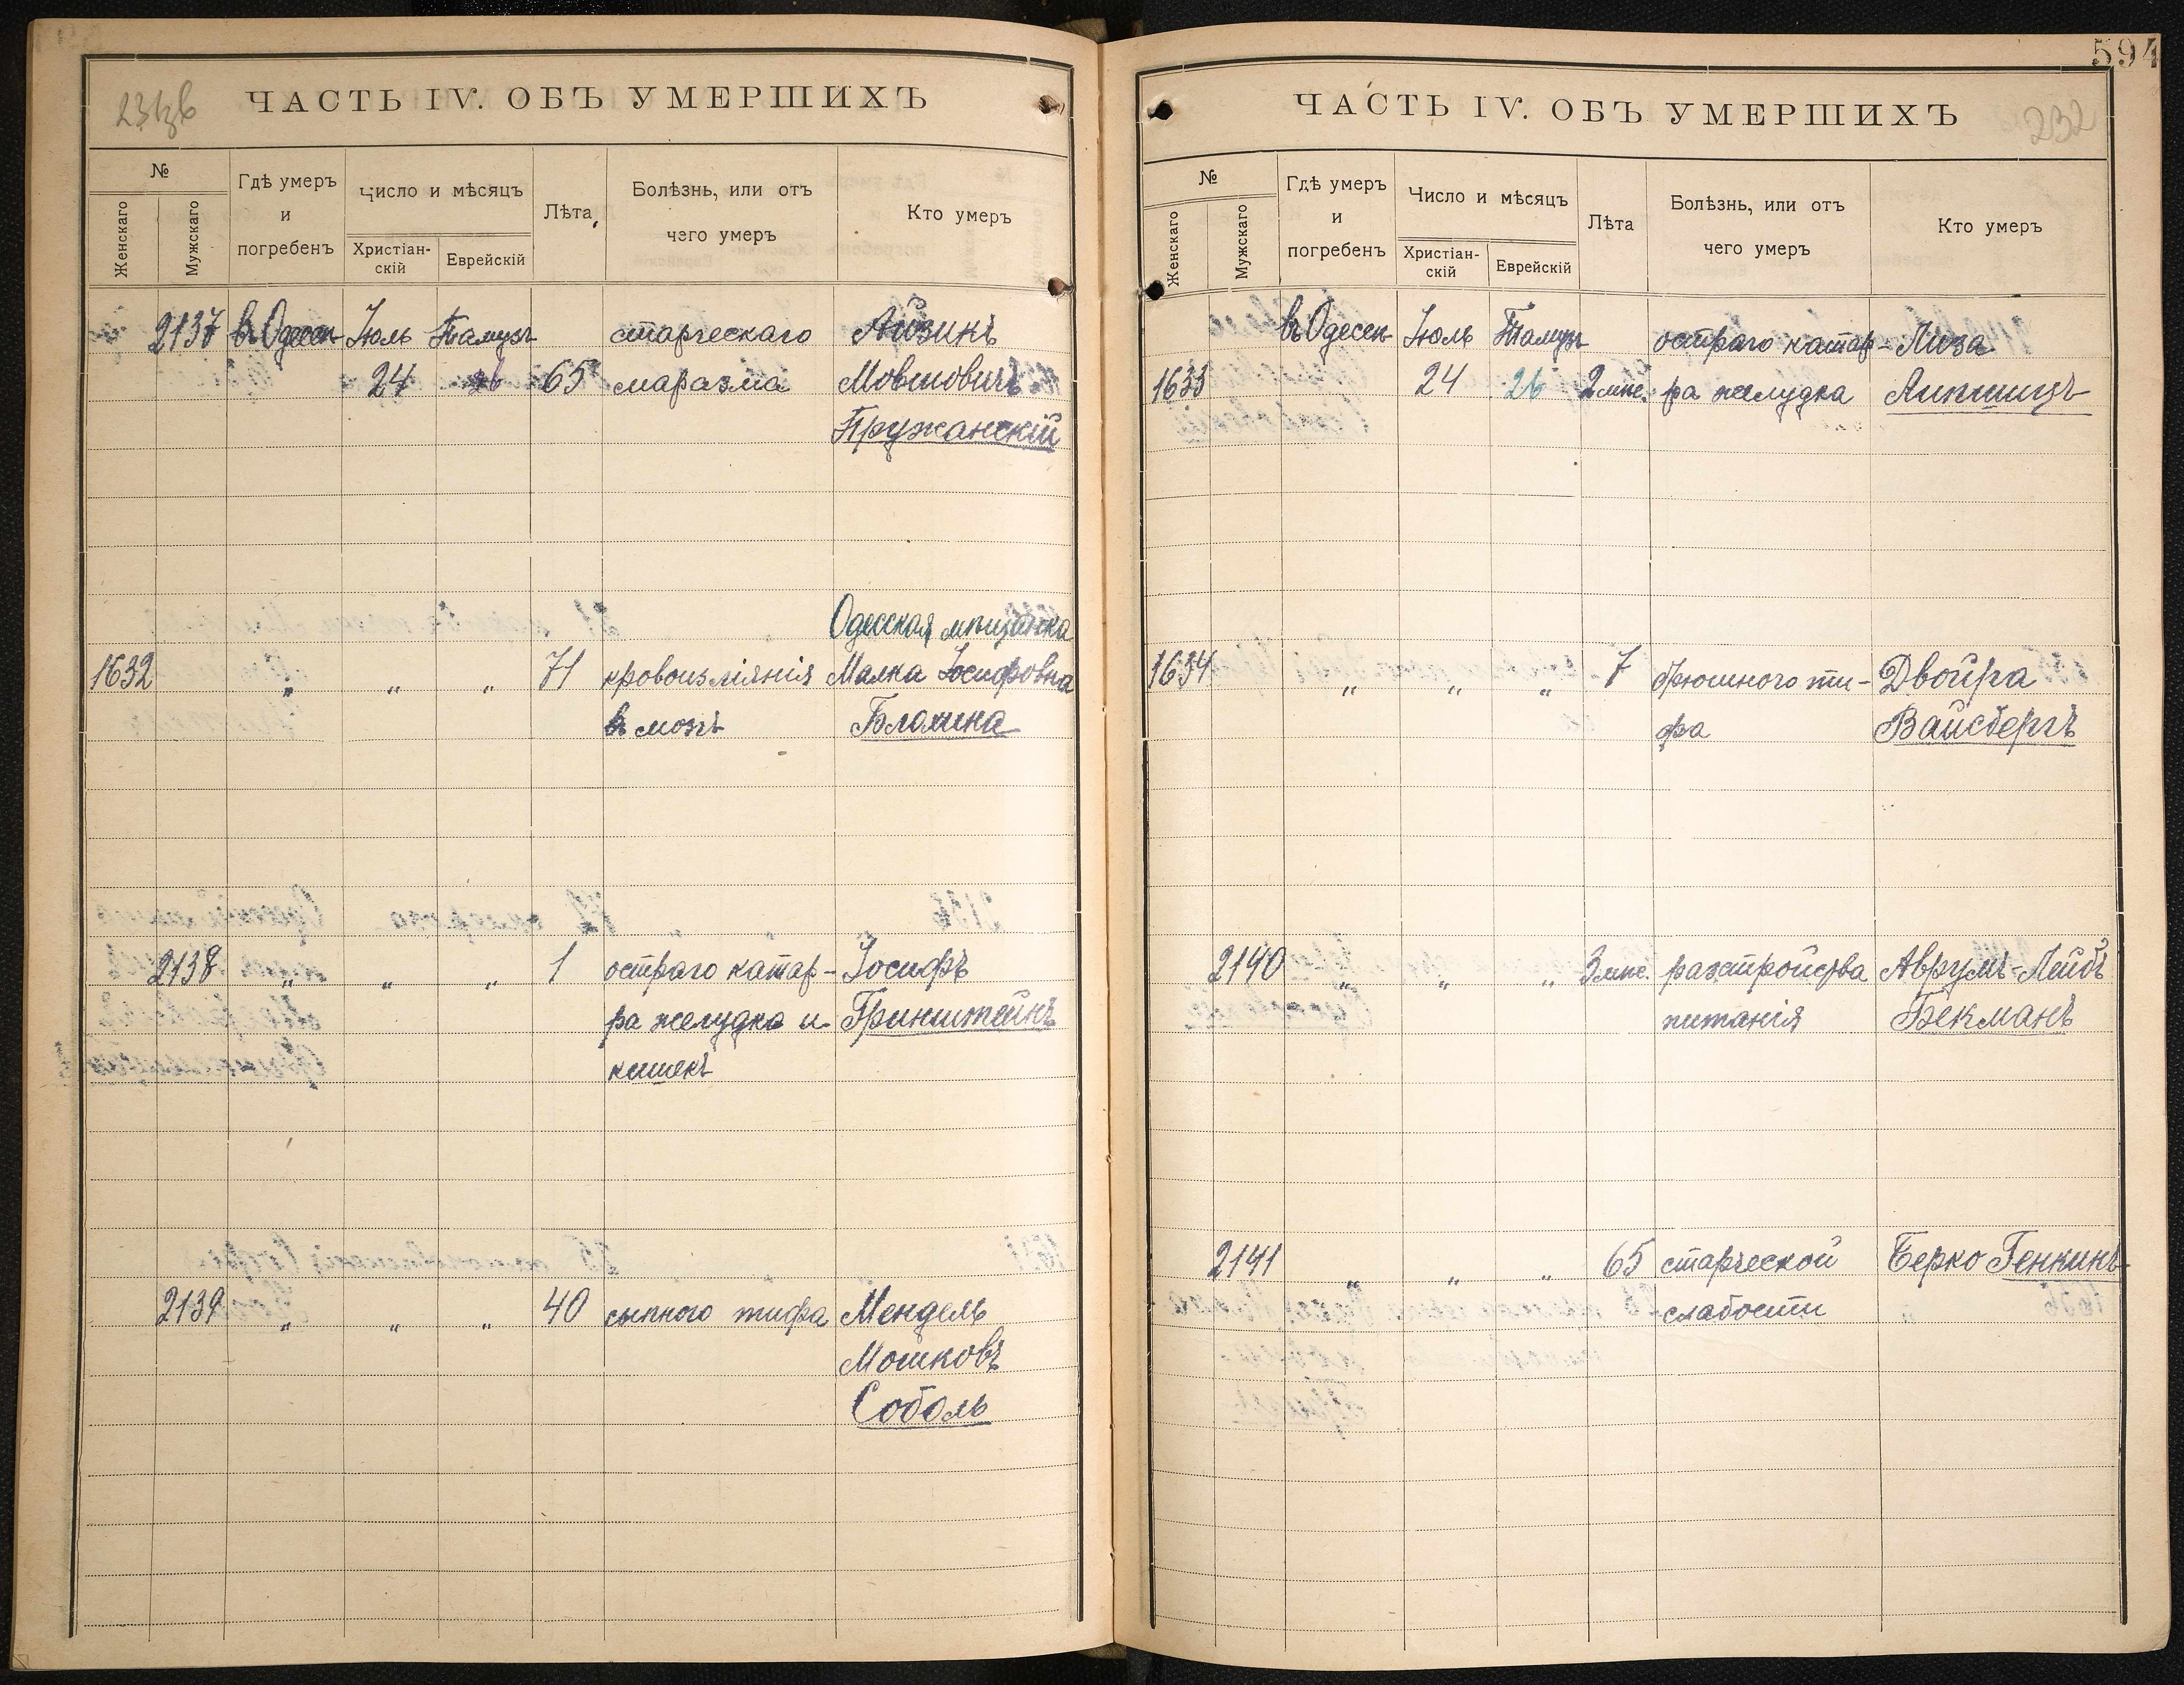 231об
ЧАСТЬ IV. ОБЪ УМЕРШИХЪ
№
Женскаго
Мужскаго
Гдѣ умеръ
и
погребенъ
Число и мѣсяцъ
Христіан-
скій
Еврейскій
Лѣта
Болѣзнь, или отъ
чего умеръ
Кто умеръ
2137 въ Одессѣ Іюль Тамузъ старческаго Айзикъ
24 26 65 маразма Мовшовичъ
Пружанскій
Одесская мѣщанка
1632 „ „ „ 71 кровоизліянія Малка Іосифовна
въ мозгъ Блохина
2138 „ „ „ 1 остраго катар- Іосифъ
ра желудка и Гринштейнъ
кишекъ
2139 „ „ „ 40 сыпного тифа Мендель
Мошковъ
Соболь
594
ЧАСТЬ IV. ОБЪ УМЕРШИХЪ
232
№
Женскаго
Мужскаго
Гдѣ умеръ
и
погребенъ
Число и мѣсяцъ
Христіан-
скій
Еврейскій
Лѣта
Болѣзнь, или отъ
чего умеръ
Кто умеръ
въ Одессѣ Іюль Тамузъ остраго катар- Лиза
1633 24 26 2 мѣс. ра желудка Липшицъ
1634 „ „ „ 7 брюшного ти- Двойра
фа Вайсбергъ
2140 „ „ „ 3 мѣс. разстройства Аврумъ-Лейбъ
питанія Бекманъ
2141 „ „ „ 65 старческой Берко Генкинъ
слабости